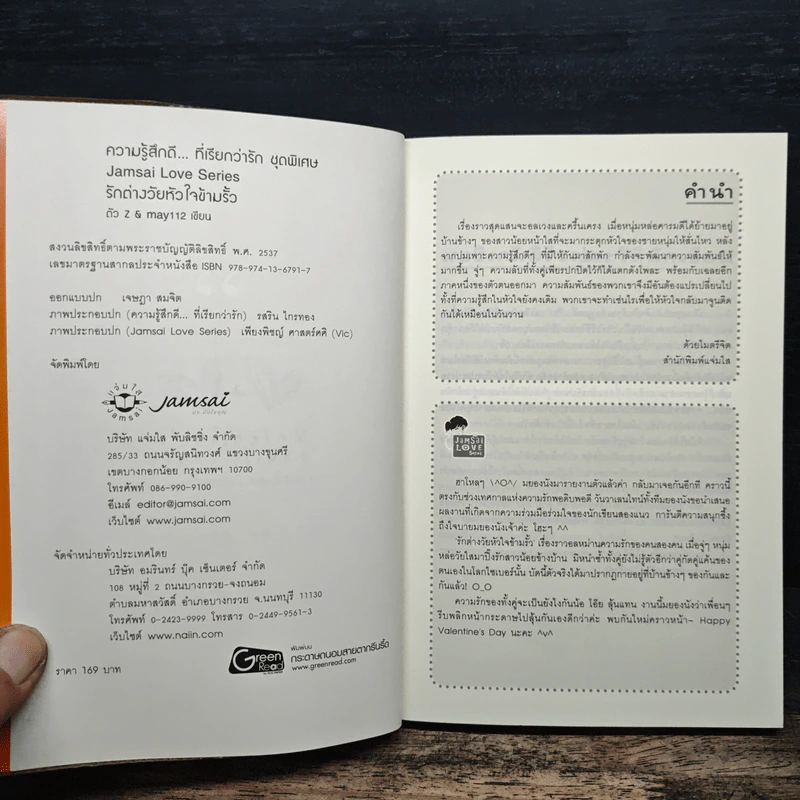 ความรู้สึกดี... ที่เรียกว่ารัก ชุดพิเศษ
Jamsai Love Series
รักต่างวัยหัวใจข้ามรั้ว
ตัว Z & may112 เขียน
สงวนลิขสิทธิ์ตามพระราชบัญญัติลิขสิทธิ์ พ.ศ. 2537
เลขมาตรฐานสากลประจำหนังสือ ISBN 978-974-13-6791-7
ออกแบบปก เจษฎา สมจิต
ภาพประกอบปก (ความรู้สึกดี... ที่เรียกว่ารัก) รสริน ไกรทอง
ภาพประกอบปก (Jamsai Love Series) เพียงพิชญ์ ศาสตร์ศศิ (Vic)
จัดพิมพ์โดย
แจ่มใส
Jamsai
jamsai
บริษัท แจ่มใส พับลิชชิ่ง จำกัด
285/33 ถนนจรัญสนิทวงศ์ แขวงบางขุนศรี
เขตบางกอกน้อย กรุงเทพฯ 10700
โทรศัพท์ 086-990-9100
อีเมล์ editor@jamsai.com
เว็บไซต์ www.jamsai.com
จัดจำหน่ายทั่วประเทศโดย
บริษัท อมรินทร์ บุ๊ค เซ็นเตอร์ จำกัด
108 หมู่ที่ 2 ถนนบางกรวย-จงถนอม
ตำบลมหาสวัสดิ์ อำเภอบางกรวย จ.นนทบุรี 11130
โทรศัพท์ 0-2423-9999 โทรสาร 0-2449-9561-3
เว็บไซต์ www.naiin.com
ราคา 169 บาท
Green Read
พิมพ์บน
กระดาษถนอมสายตากรีนรี้ด
www.greenread.com
คำนำ
เรื่องราวสุดแสนจะอลเวงและครื้นเครง เมื่อหนุ่มหล่อคารมดีได้ย้ายมาอยู่
บ้านข้างๆ ของสาวน้อยหน้าใสที่จะมากระตุกหัวใจของชายหนุ่มให้สั่นไหว หลัง
จากบ่มเพาะความรู้สึกดีๆ ที่มีให้กันมาสักพัก กำลังจะพัฒนาความสัมพันธ์ให้
มากขึ้น จู่ๆ ความลับที่ทั้งคู่เพียรปกปิดไว้ก็ได้แตกดังโพละ พร้อมกับเฉลยอีก
ภาคหนึ่งของตัวตนออกมา ความสัมพันธ์ของพวกเขาจึงมีอันต้องแปรเปลี่ยนไป
ทั้งที่ความรู้สึกในหัวใจยังคงเดิม พวกเขาจะทำเช่นไรเพื่อให้หัวใจกลับมาจูนติด
กันได้เหมือนในวันวาน
ด้วยไมตรีจิต
สำนักพิมพ์แจ่มใส
JAMSAI
LOVE
Series
ฮาไหลๆ \^O^/ มยองนังมารายงานตัวแล้วค่า กลับมาเจอกันอีกที คราวนี้
ตรงกับช่วงเทศกาลแห่งความรักพอดิบพอดี วันวาเลนไทน์ทั้งทีมยองนังขอนำเสนอ
ผลงานที่เกิดจากความร่วมมือร่วมใจของนักเขียนสองแนว การันตีความสนุกซึ้ง
ถึงใจบายมยองนังเจ้าค่ะ โฮะๆ ^^
'รักต่างวัยหัวใจข้ามรั้ว' เรื่องราวอลหม่านความรักของคนสองคน เมื่อจู่ๆ หนุ่ม
หล่อวัยใสมาปิ๊งรักสาวน้อยข้างบ้าน มิหนำซ้ำทั้งคู่ยังไม่รู้ตัวอีกว่าคู่กัดคู่แค้นของ
ตนเองในโลกไซเบอร์นั้น บัดนี้ตัวจริงได้มาปรากฏกายอยู่ที่บ้านข้างๆ ของกันและ
กันแล้ว! O_O
ความรักของทั้งคู่จะเป็นยังไงกันน้อ โอ๊ย ลุ้นแทน งานนี้มยองนังว่าเพื่อนๆ
รีบพลิกหน้ากระดาษไปลุ้นกันเองดีกว่าค่ะ พบกันใหม่คราวหน้า~ Happy
Valentine's Day นะคะ ^v^